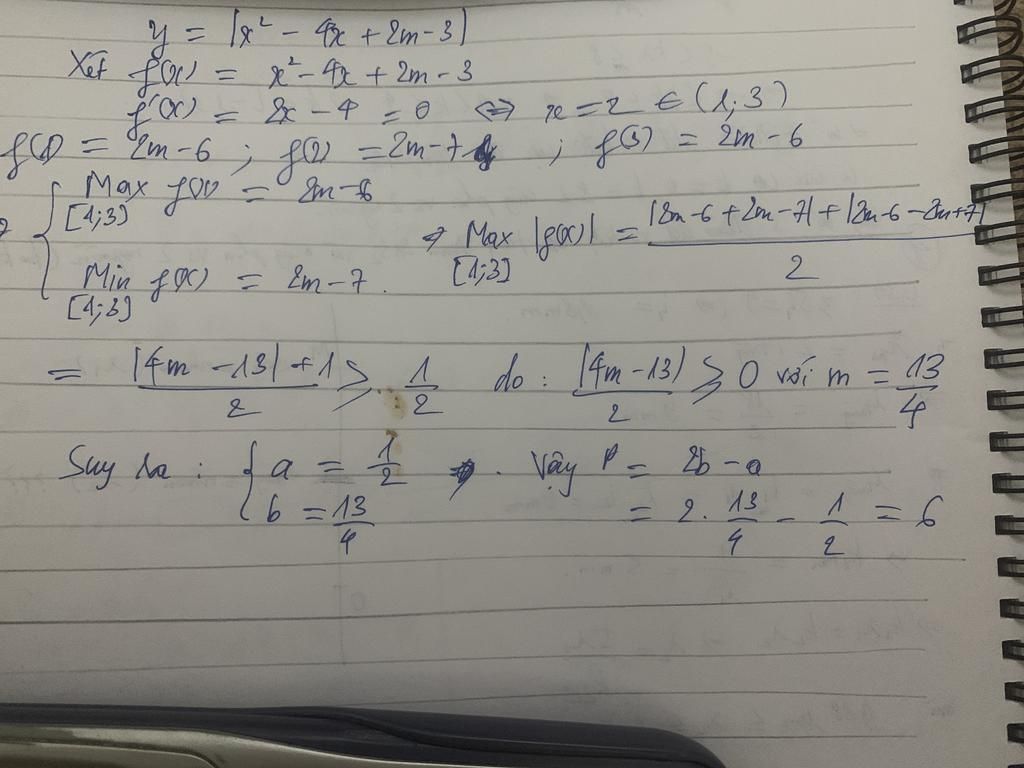 y = |x² - 4x + 2m - 3|
Xét f(x) = x² - 4x + 2m - 3
f'(x) = 2x - 4 = 0 ⇔ x = 2 ∈ (1;3)
f(1) = 2m - 6 ; f(2) = 2m - 7 ; f(3) = 2m - 6
{ Max f(x) = 2m - 6
[1;3]
Min f(x) = 2m - 7.
[1;3]
⇒ Max |f(x)| = (|2m - 6 + 2m - 7| + |2m - 6 - 2m + 7|)/2
[1;3]
= (|4m - 13| + 1)/2 ⩾ 1/2 do : |4m - 13|/2 ⩾ 0 với m = 13/4
Suy ra : { a = 1/2 . Vậy P = 2b - a
b = 13/4 = 2. 13/4 - 1/2 = 6